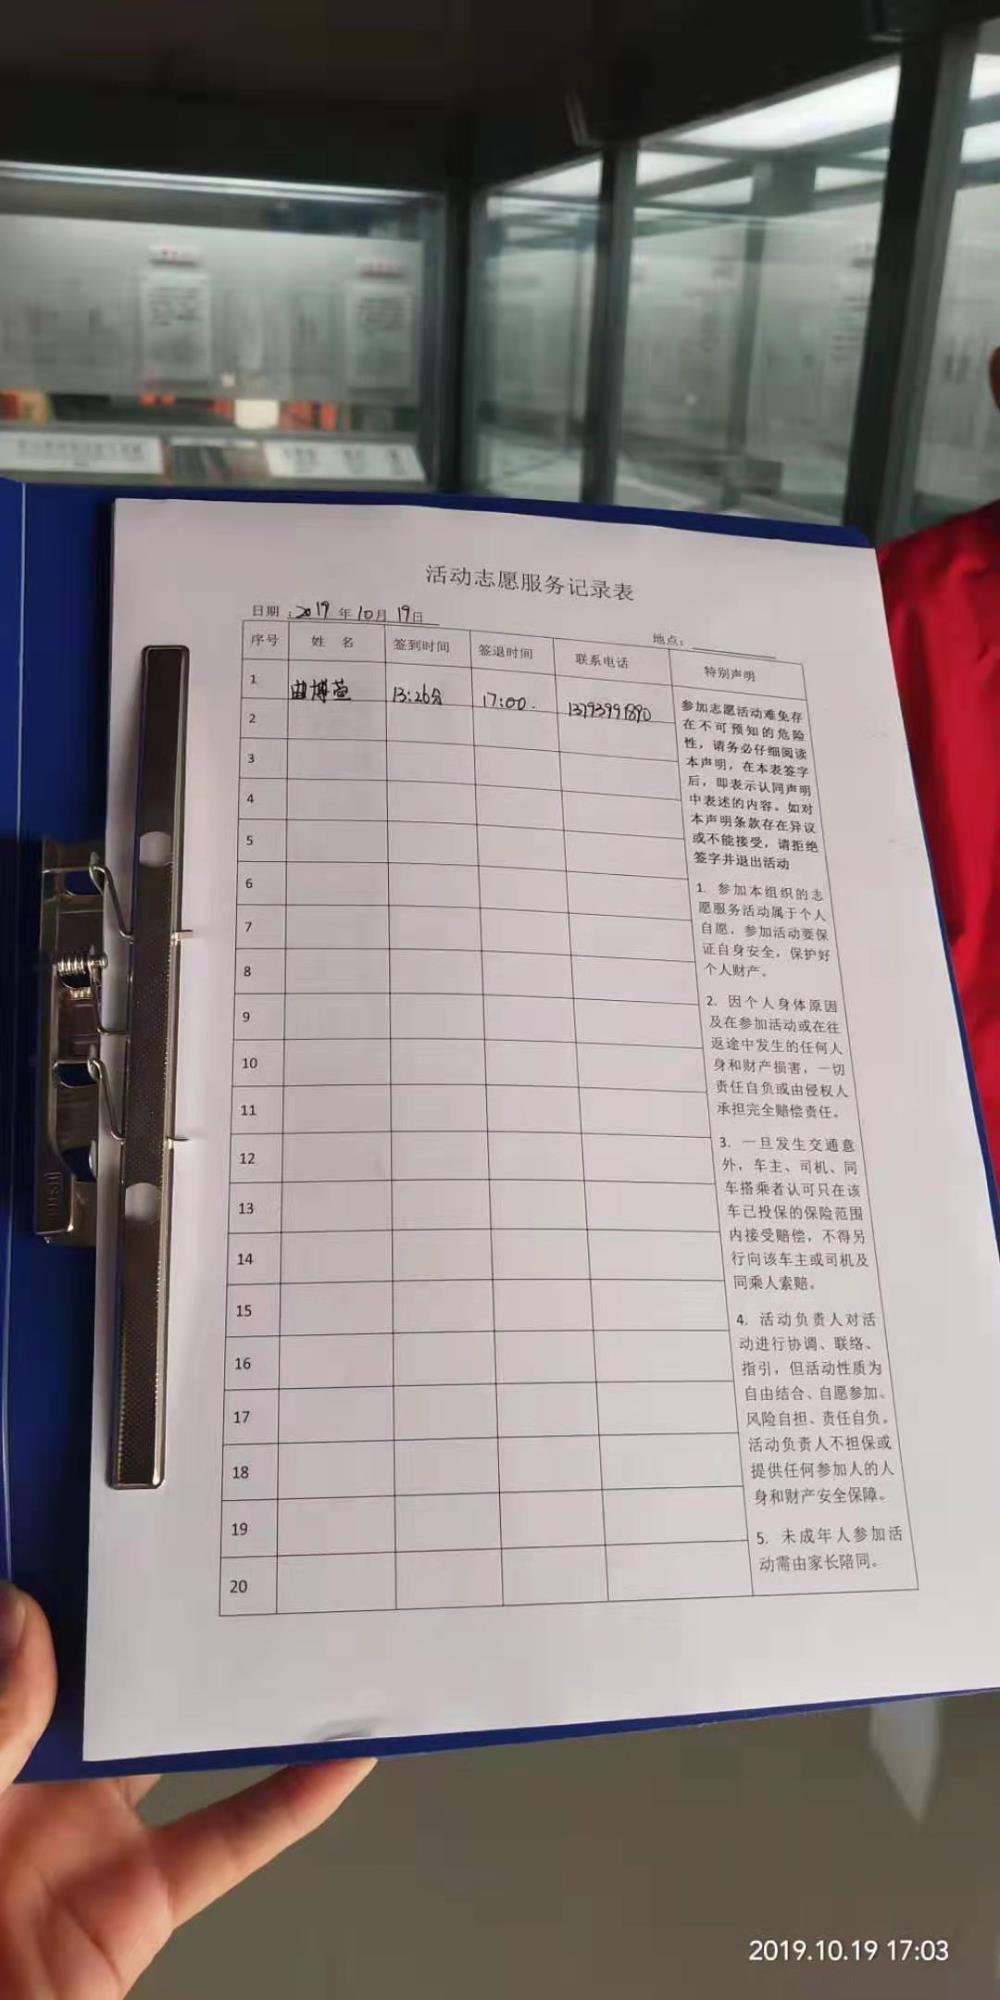 活动志愿服务记录表
日期：2019年10月19日
地点：
序号 姓 名 签到时间 签退时间 联系电话 特别声明
1 曲博萱 13:26分 17:00. 13793991890
2
3
4
5
6
7
8
9
10
11
12
13
14
15
16
17
18
19
20
参加志愿活动难免存
在不可预知的危险
性，请务必仔细阅读
本声明，在本表签字
后，即表示认同声明
中表述的内容。如对
本声明条款存在异议
或不能接受，请拒绝
签字并退出活动
1. 参加本组织的志
愿服务活动属于个人
自愿，参加活动要保
证自身安全，保护好
个人财产。
2. 因个人身体原因
及在参加活动或在往
返途中发生的任何人
身和财产损害，一切
责任自负或由侵权人
承担完全赔偿责任。
3. 一旦发生交通意
外，车主、司机、同
车搭乘者认可只在该
车已投保的保险范围
内接受赔偿，不得另
行向该车主或司机及
同乘人索赔。
4. 活动负责人对活
动进行协调、联络、
指引，但活动性质为
自由结合、自愿参加、
风险自担、责任自负。
活动负责人不担保或
提供任何参加人的人
身和财产安全保障。
5. 未成年人参加活
动需由家长陪同。
2019.10.19 17:03